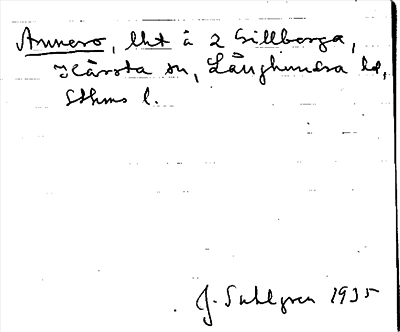 Annero, lht å 2 Gillberga,
Kårsta sn, Långhundra hd,
Sthms l.
J. Sahlgren 1935